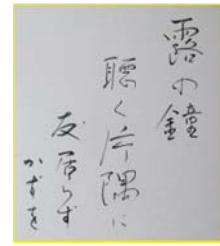 露の鐘
聴く片隅に
友居らず
かずを